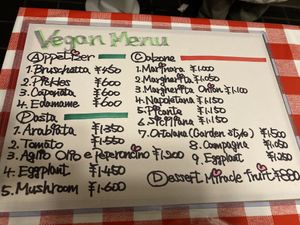 Vegan Menu
Ⓐppetizer
1. Bruschetta ¥450
2. Pickles ¥600
3. Caponata ¥600
4. Edamame ¥600
Ⓑasta
1. Arabiata ¥1350
2. Tomato ¥1.550
3. Aglio Olio e Peperoncino ¥1.300
4. Eggplant ¥1.450
5. Mushroom ¥1.600
Ⓒalzone
1. Marinara ¥1.000
2. Margherita ¥1.050
3. Margherita Onion ¥1.100
4. Napoletana ¥1.150
5. ¥1.150
6. Siciliana ¥1.150
7. Ortolana (Garden style) ¥1.500
8. Campagna ¥1.050
9. Eggplant ¥1.250
Ⓓessert Miracle fruit ¥880